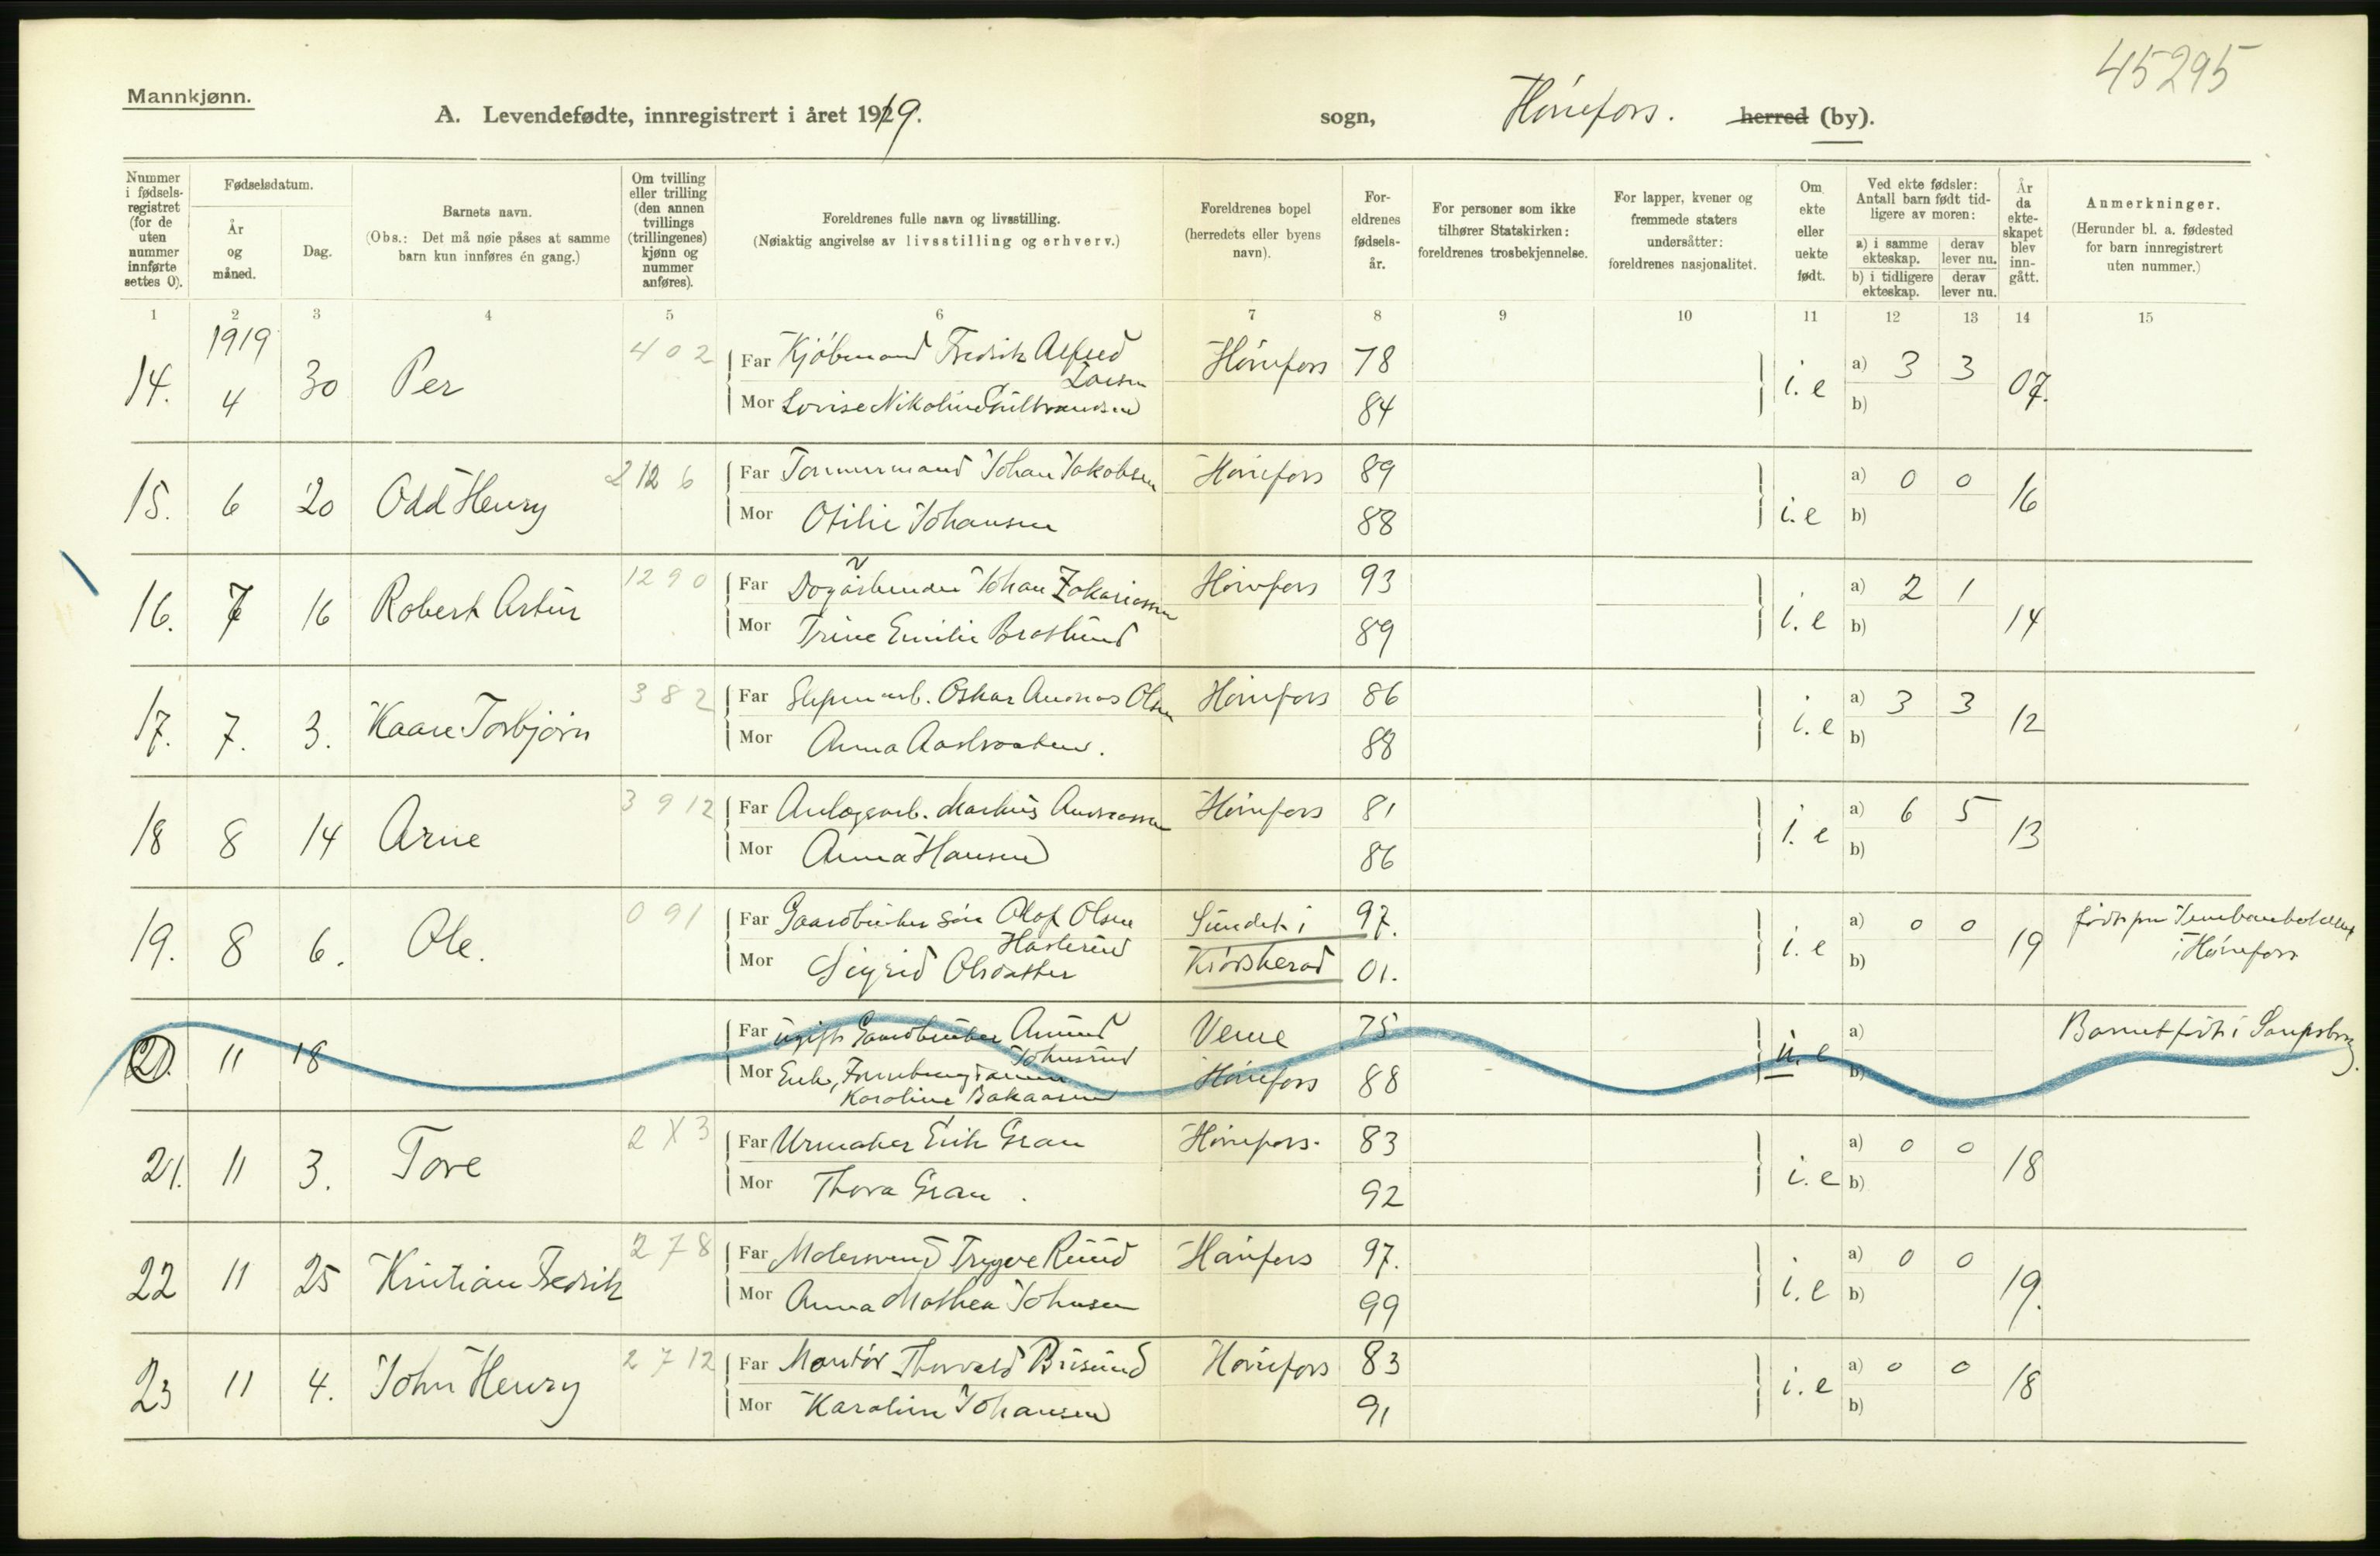 45295
Mannkjønn.
A. Levendefødte, innregistrert i året 1919. sogn, Hønefoss. herred (by).
Nummer i fødselsregistret (for de uten nummer innførte settes 0).
Fødselsdatum.
År og måned.
Dag.
Barnets navn.
(Obs.: Det må nøie påses at samme barn kun innføres én gang.)
Om tvilling eller trilling (den annen tvillings (trillingenes) kjønn og nummer anføres).
Foreldrenes fulle navn og livsstilling.
(Nøiaktig angivelse av livsstilling og erhverv.)
Foreldrenes bopel (herredets eller byens navn).
Foreldrenes fødselsår.
For personer som ikke tilhører Statskirken: foreldrenes trosbekjennelse.
For lapper, kvener og fremmede staters undersåtter: foreldrenes nasjonalitet.
Om ekte eller uekte født.
Ved ekte fødsler: Antall barn født tidligere av moren:
a) i samme ekteskap. derav lever nu.
b) i tidligere ekteskap. derav lever nu.
År da ekteskapet blev inngått.
Anmerkninger.
(Herunder bl. a. fødested for barn innregistrert uten nummer.)
1 2 3 4 5 6 7 8 9 10 11 12 13 14 15
1919
14. 4 30 Per 402 Far Kjøbmand Fredrik Alfred Larsen Hønefoss 78 i.e a) 3 3 07.
Mor Lovise Nikoline Gulbrandsen 84 b)
15. 6 20 Odd Henry 2126 Far Tømmermand Johan Jakobsen Hønefoss 89 i.e a) 0 0 16
Mor Otilie Johansen 88 b)
16. 7 16 Robert Artur 1290 Far Johan Zakariassen Hønefoss 93 i.e a) 2 1 14
Mor Trine Emilie 89 b)
17. 7. 3. Kaare Torbjørn 382 Far Oskar Andreas Olsen Hønefoss 86 i.e a) 3 3 12
Mor Anna 88 b)
18 8 14 Arne 3912 Far Anlægsarb. Markus Andreassen Hønefoss 81 i.e a) 6 5 13
Mor Anna Hansen 86 b)
19. 8 6. Ole. 091 Far Gaardbruker søn Olaf Olsen Haslerud Sundet i 97. i.e a) 0 0 19 født paa i Hønefoss
Mor Sigrid Olsdatter Krødsherad 01. b)
20. 11 18 Far ugift Gaardbruker Amund Johnsrud Veme 75 u.e a) Barnet født i Sarpsborg.
Mor Enke, Karoline Bakaasen Hønefoss 88 b)
21. 11 3. Tore 2X3 Far Urmaker Erik Gran Hønefoss. 83 i.e a) 0 0 18
Mor Thora Gran. 92 b)
22 11 25 Kristian Fredrik 278 Far Malersvend Trygve Ruud Hønefoss 97. i.e a) 0 0 19.
Mor Anna Mathea Johnsen 99 b)
23 11 4. John Henry 2712 Far Montør Thorvald Hønefoss 83 i.e a) 0 0 18
Mor Karoline Johansen 91 b)